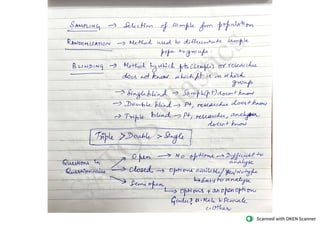 SAMPLING → Selection of sample from population
RANDOMISATION → Method used to differentiate sample
popn to groups
BLINDING → Method by which pts (sample) or researcher
does not know which pt is in which
group
→ Single blind → Sample (pt) doesnt know
→ Double blind → Pt, researcher doesnt know
→ Triple blind → Pt, researcher, analyser
doesnt know
Triple > Double > Single
Questions in
Questionnaire
Open → No options → Difficult to
analyse
Closed → options available / yes/no type
→ easy to analyse
Semi open
→ options + an open option
Gender? a. Male b. Female
c. Other
Scanned with OKEN Scanner